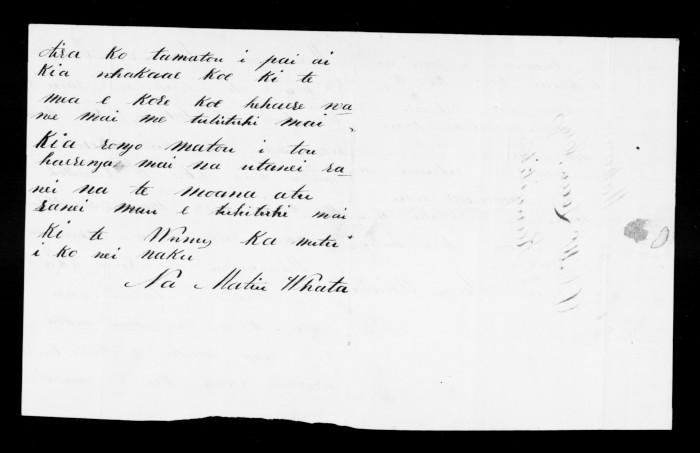 tira ko tamatou i pai ai
kia whakaae koe ki te
mea e kore koe hehaere ra
ne mai me tuhituhi mai
Kia rongo matou i tou
haerenga mai na utanei ra
nei na te moana atu
ranei mau e tuhituhi mai
ki te Ka mutu
i ko nei naku
Na Matiu Whata